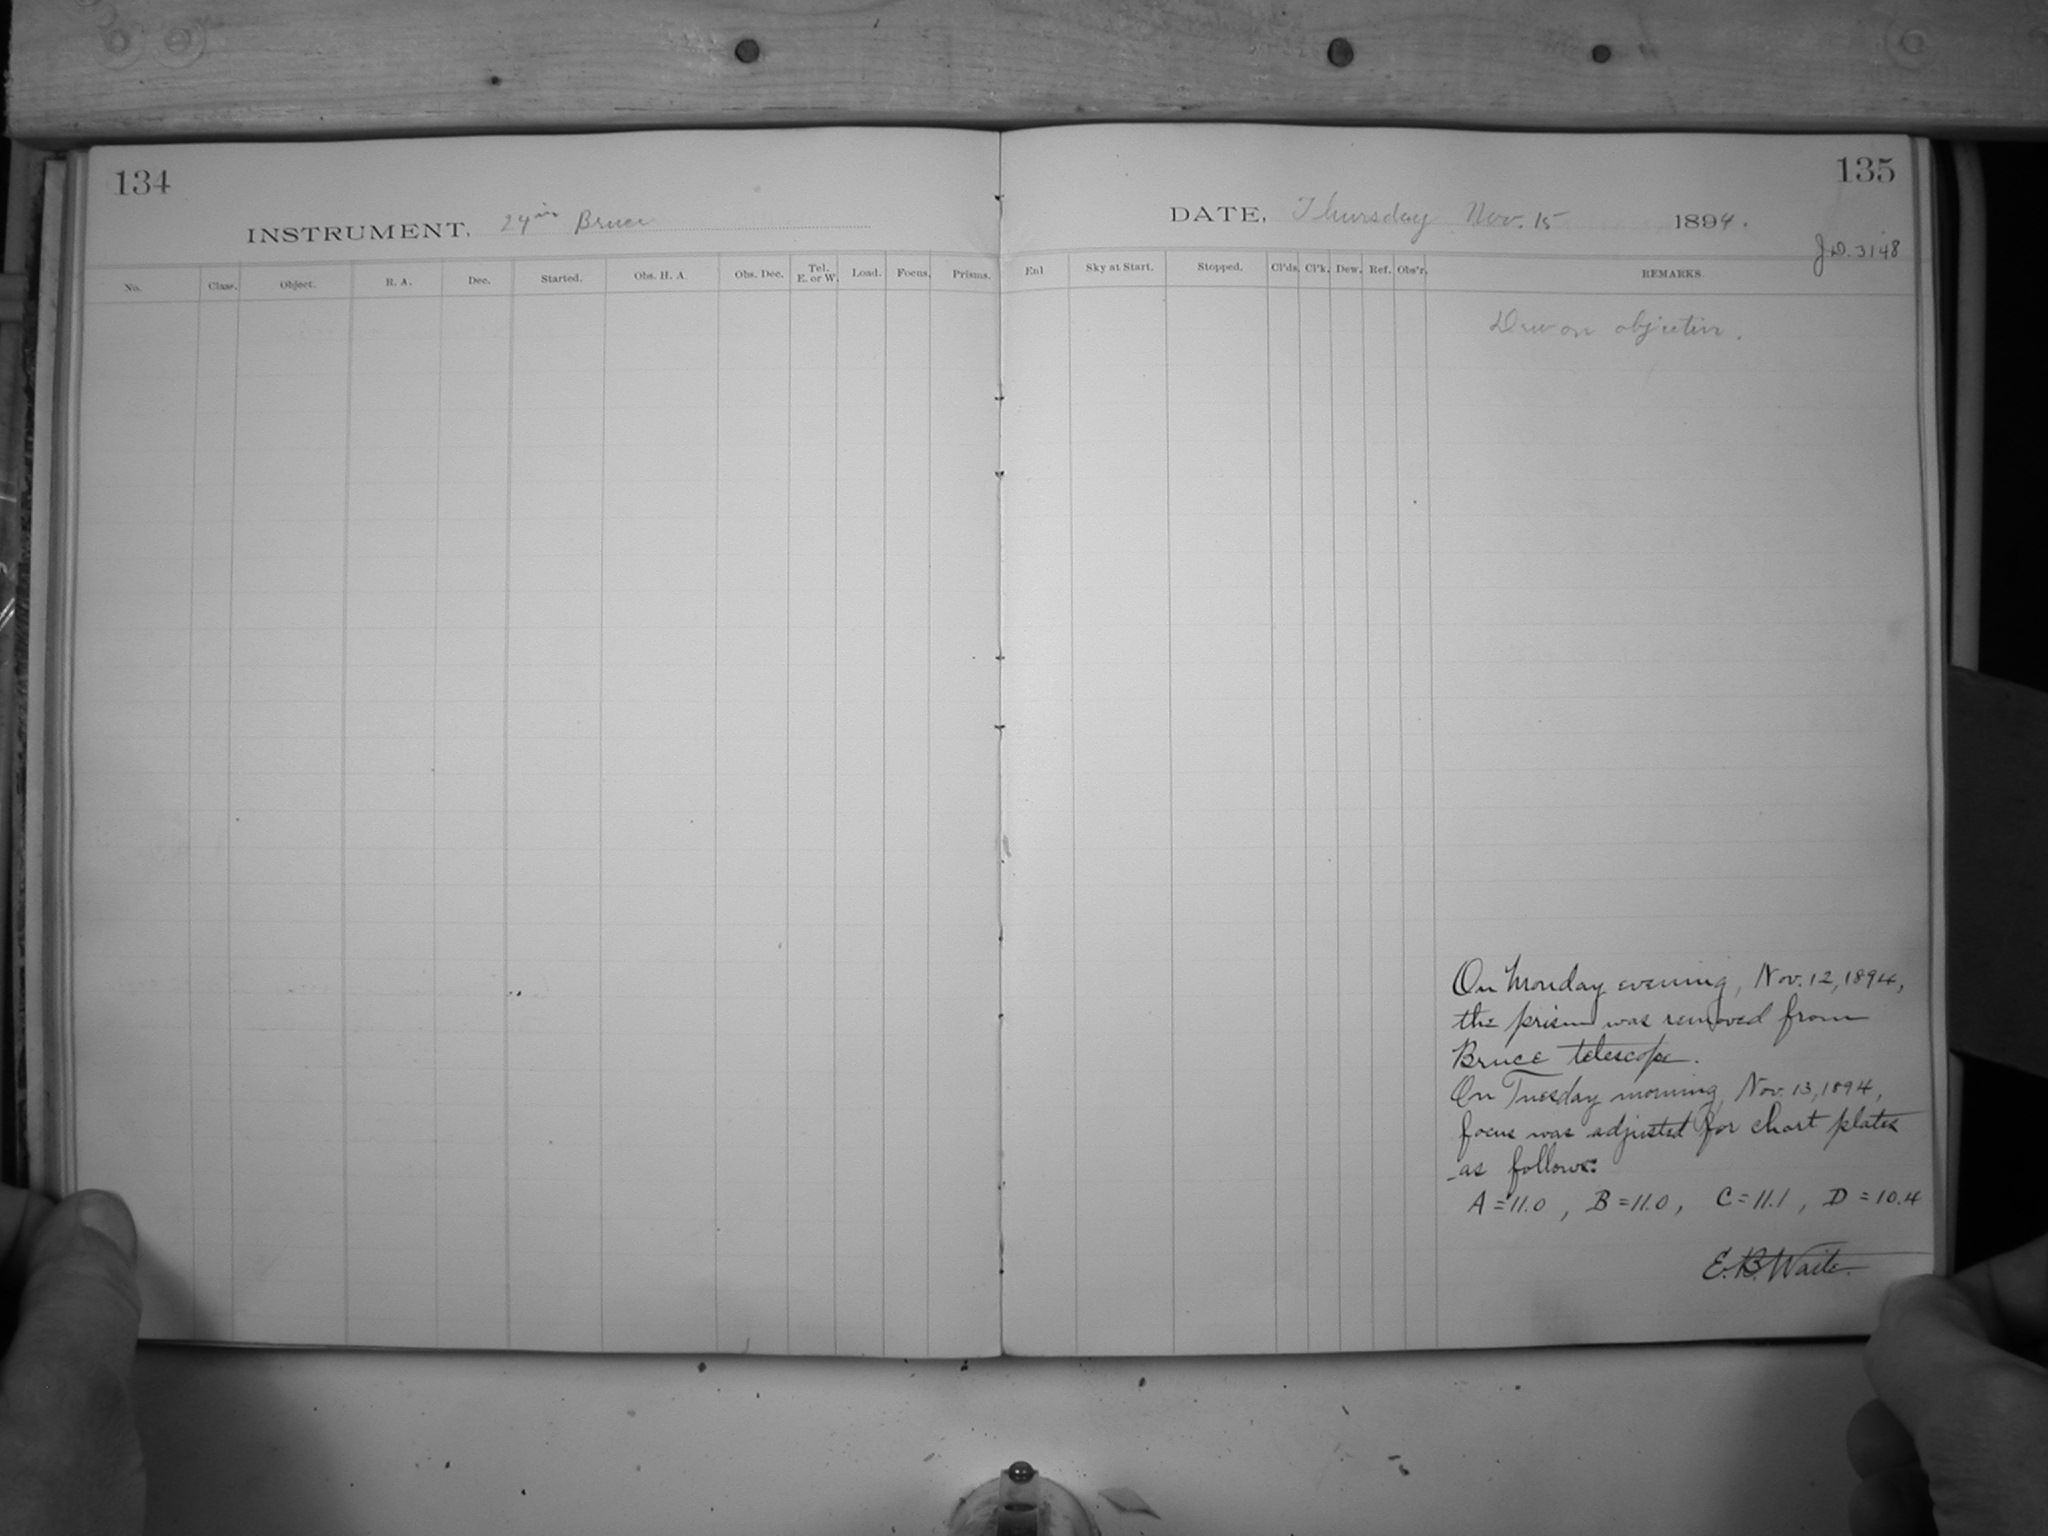 134
INSTRUMENT, 24in Bruce
No. Class. Object. R. A. Dec. Started. Obs. H. A. Obs. Dec. Tel. E. or W. Load. Focus. Prisms.
135
DATE, Thursday Nov. 15 1894.
J.D. 3148
Enl Sky at Start. Stopped. Cl'ds. Cl'k. Dew. Ref. Obs'r. REMARKS.
Dew on objective.
On Monday evening, Nov. 12, 1894,
the prism was removed from
Bruce telescope.
On Tuesday morning, Nov. 13, 1894,
focus was adjusted for chart plates
as follows:
A = 11.0 , B = 11.0 , C = 11.1 , D = 10.4
E. B. Waite.